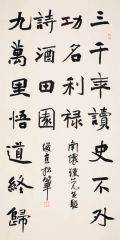 三千年讀史不外
功名利祿
九萬里悟道終歸
詩酒田園
南懷瑾先生